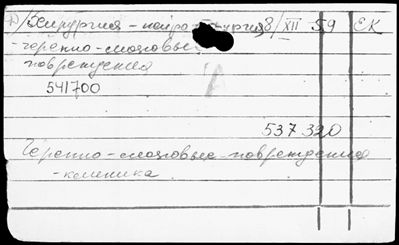 Хирургия - нейрохирургия 8/XII 59 ЕК
-черепно-мозговые
повреждения
541700
537320
Черепно-мозговые повреждения
-клиника